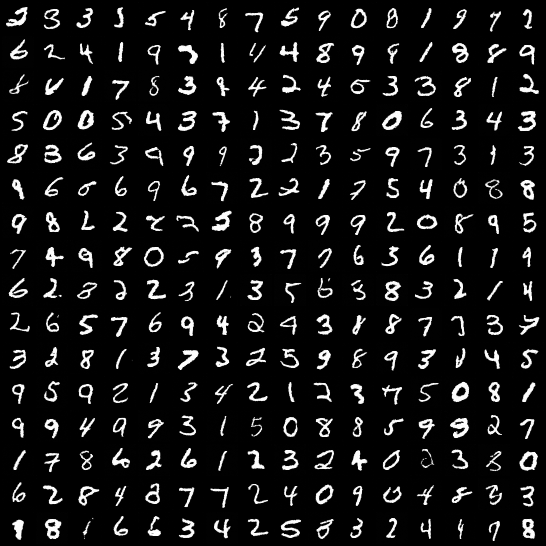 3 3 3 5 4 8 7 5 9 0 8 1 9 7 2
6 2 4 1 9 3 1 4 4 8 9 9 1 8 8 9
8 1 7 8 3 9 4 2 4 5 3 3 8 1 2
5 0 0 5 4 3 7 1 3 7 8 0 6 3 4 3
8 3 6 3 9 9 9 2 2 3 5 9 7 3 1 3
9 6 6 6 9 6 7 2 2 1 7 5 4 0 8 8
9 8 2 2 2 2 8 9 9 9 2 0 8 9 5
7 4 9 8 0 5 9 3 7 7 6 3 6 1 1 9
6 2 8 2 2 3 1 3 5 6 3 8 3 2 1 4
2 6 5 7 6 9 4 2 4 3 8 8 7 7 3 7
3 2 8 1 3 7 3 2 5 9 8 9 3 4 5
9 5 9 2 1 3 4 2 1 2 3 7 5 0 8 1
9 9 4 9 9 3 1 5 0 8 8 5 9 9 2 7
1 7 8 6 2 6 1 2 3 2 4 0 2 3 8 0
6 2 8 4 8 7 7 2 4 0 9 0 4 8 3 3
1 8 1 6 6 3 4 2 5 3 3 2 4 9 7 8